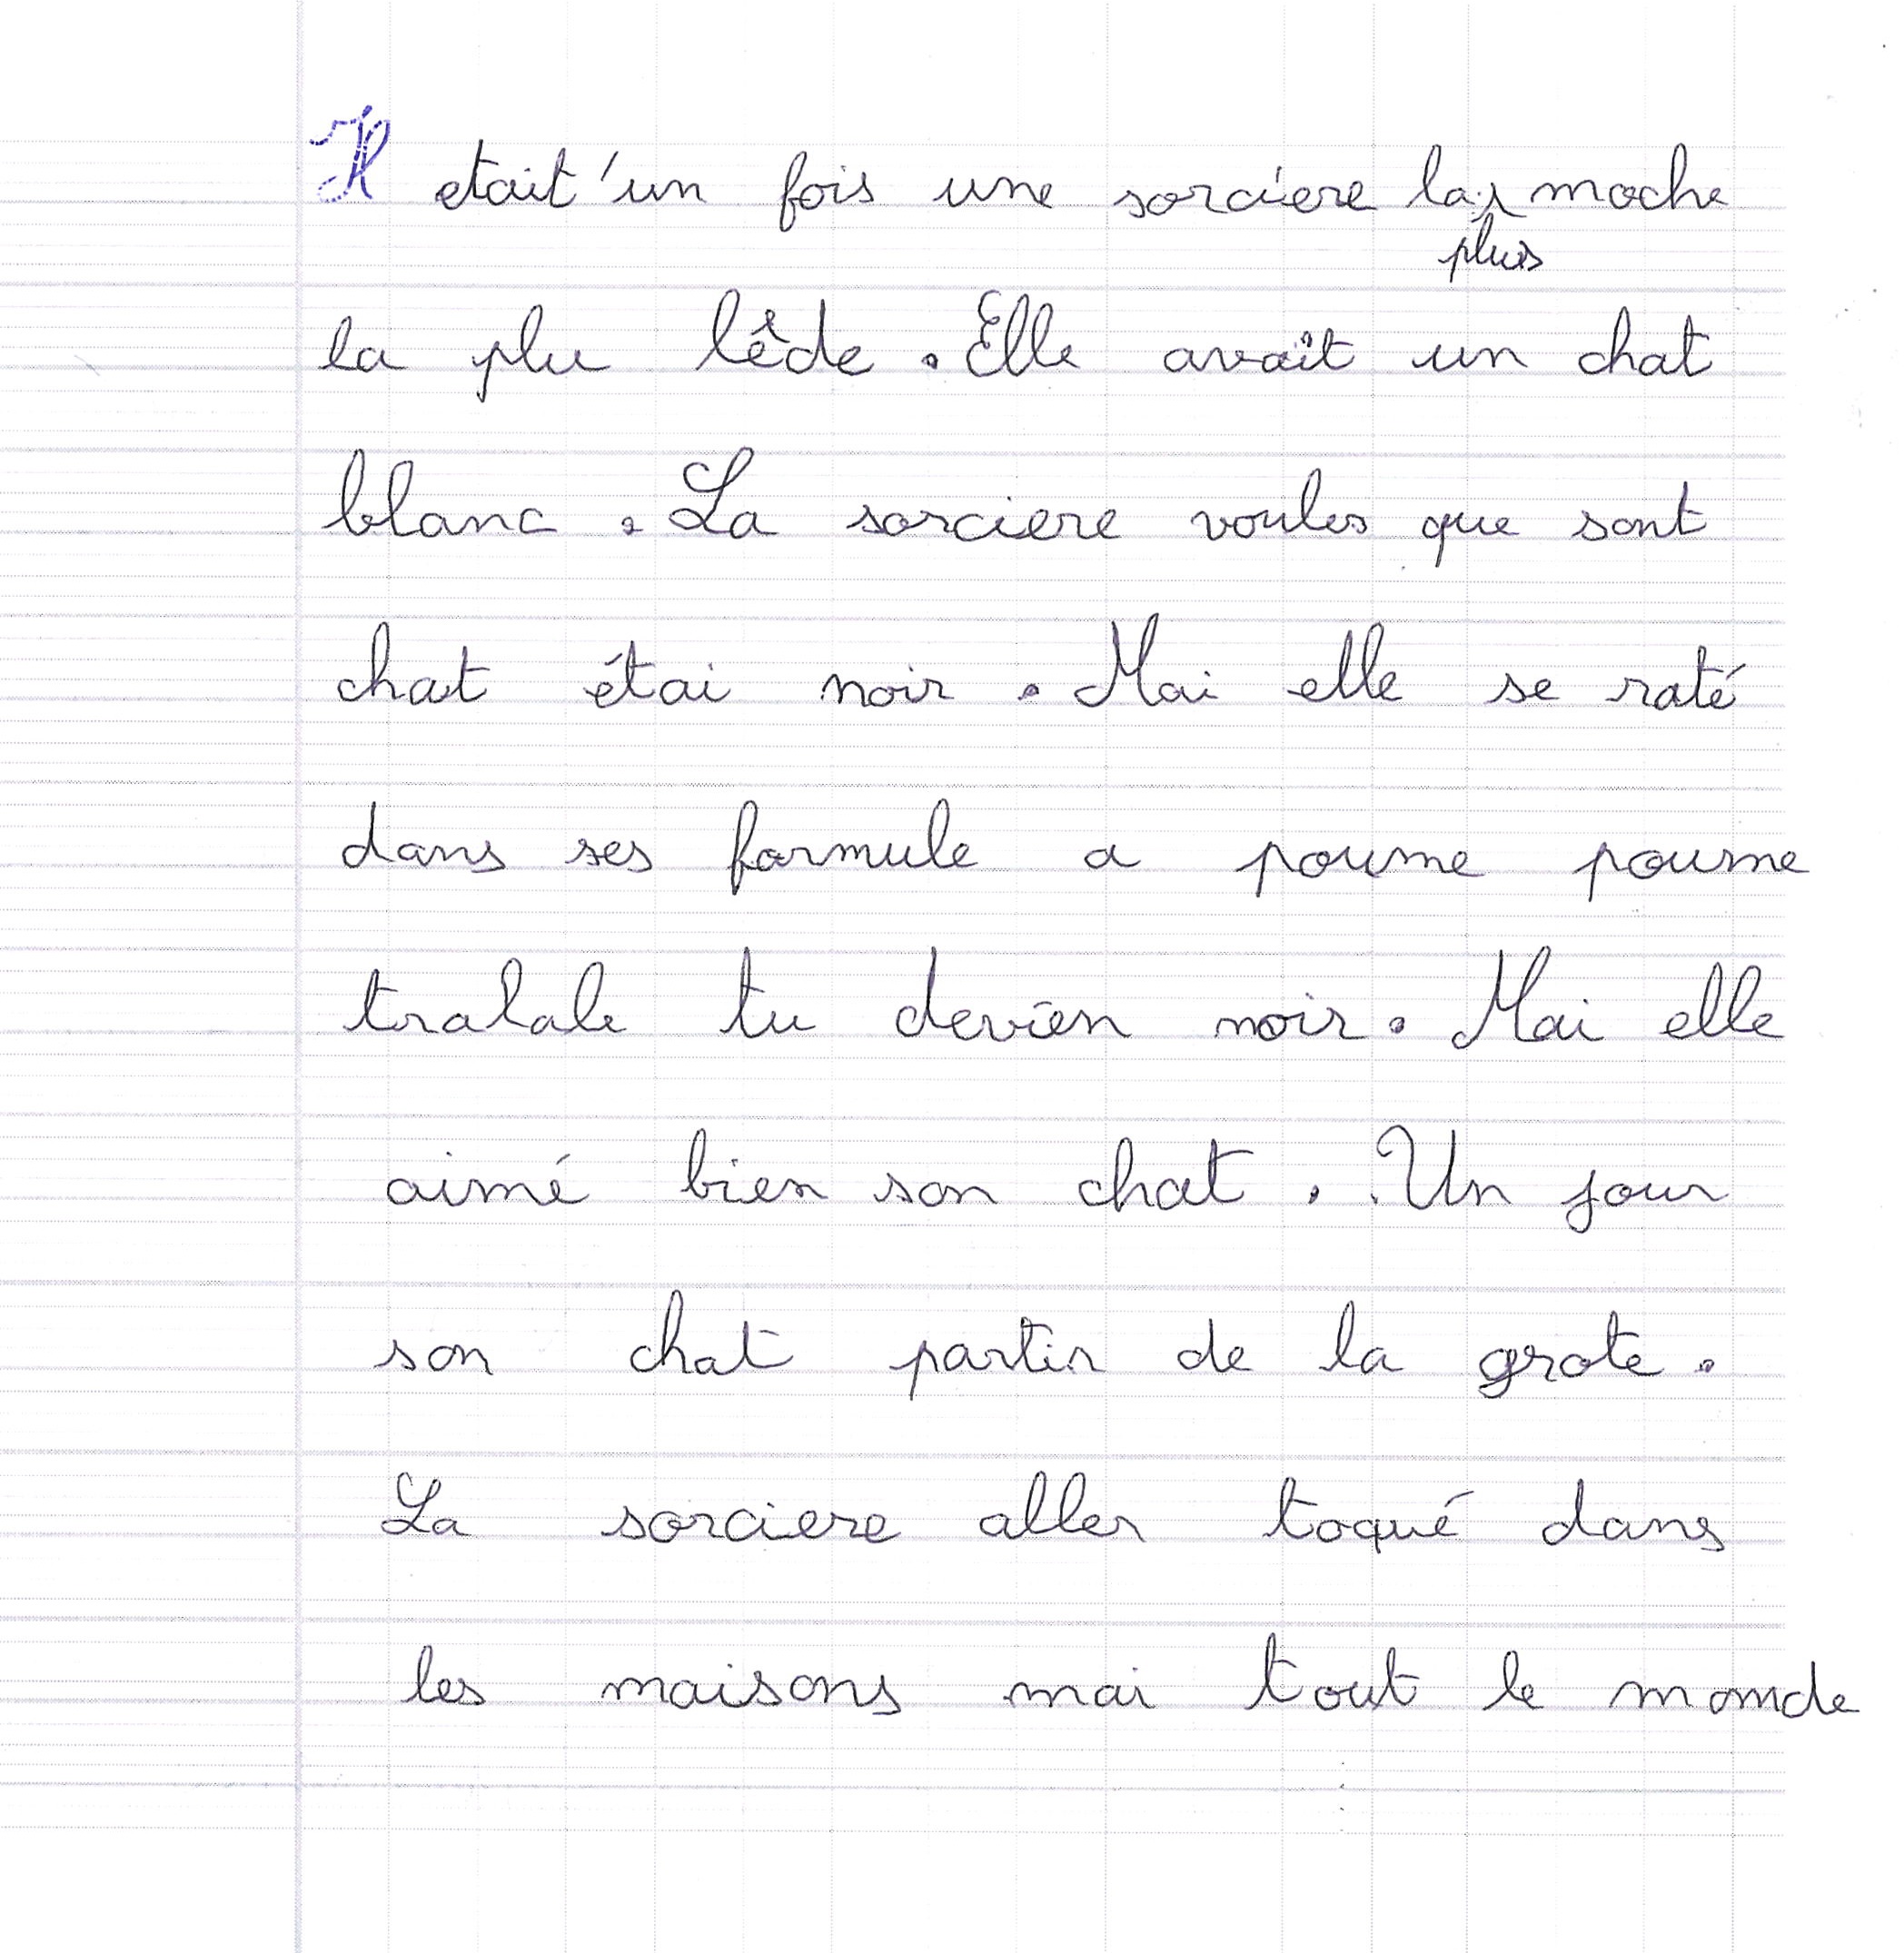 Il etait'un fois une sorciere la plus moche
la plu lêde. Elle avait un chat
blanc. La sorciere voules que sont
chat étai noir. Mai elle se raté
dans ses formule a poume poume
tralale tu devien noir. Mai elle
aimé bien son chat. Un jour
son chat partir de la grote.
La sorciere aller toqué dans
les maisons mai tout le monde